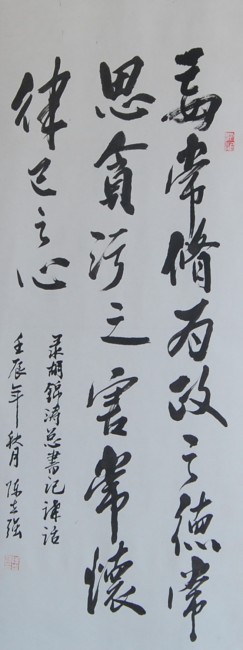 要常修为政之德常
思貪污之害常懷
律己之心
录胡锦涛总書记讲话
壬辰年秋月陈强